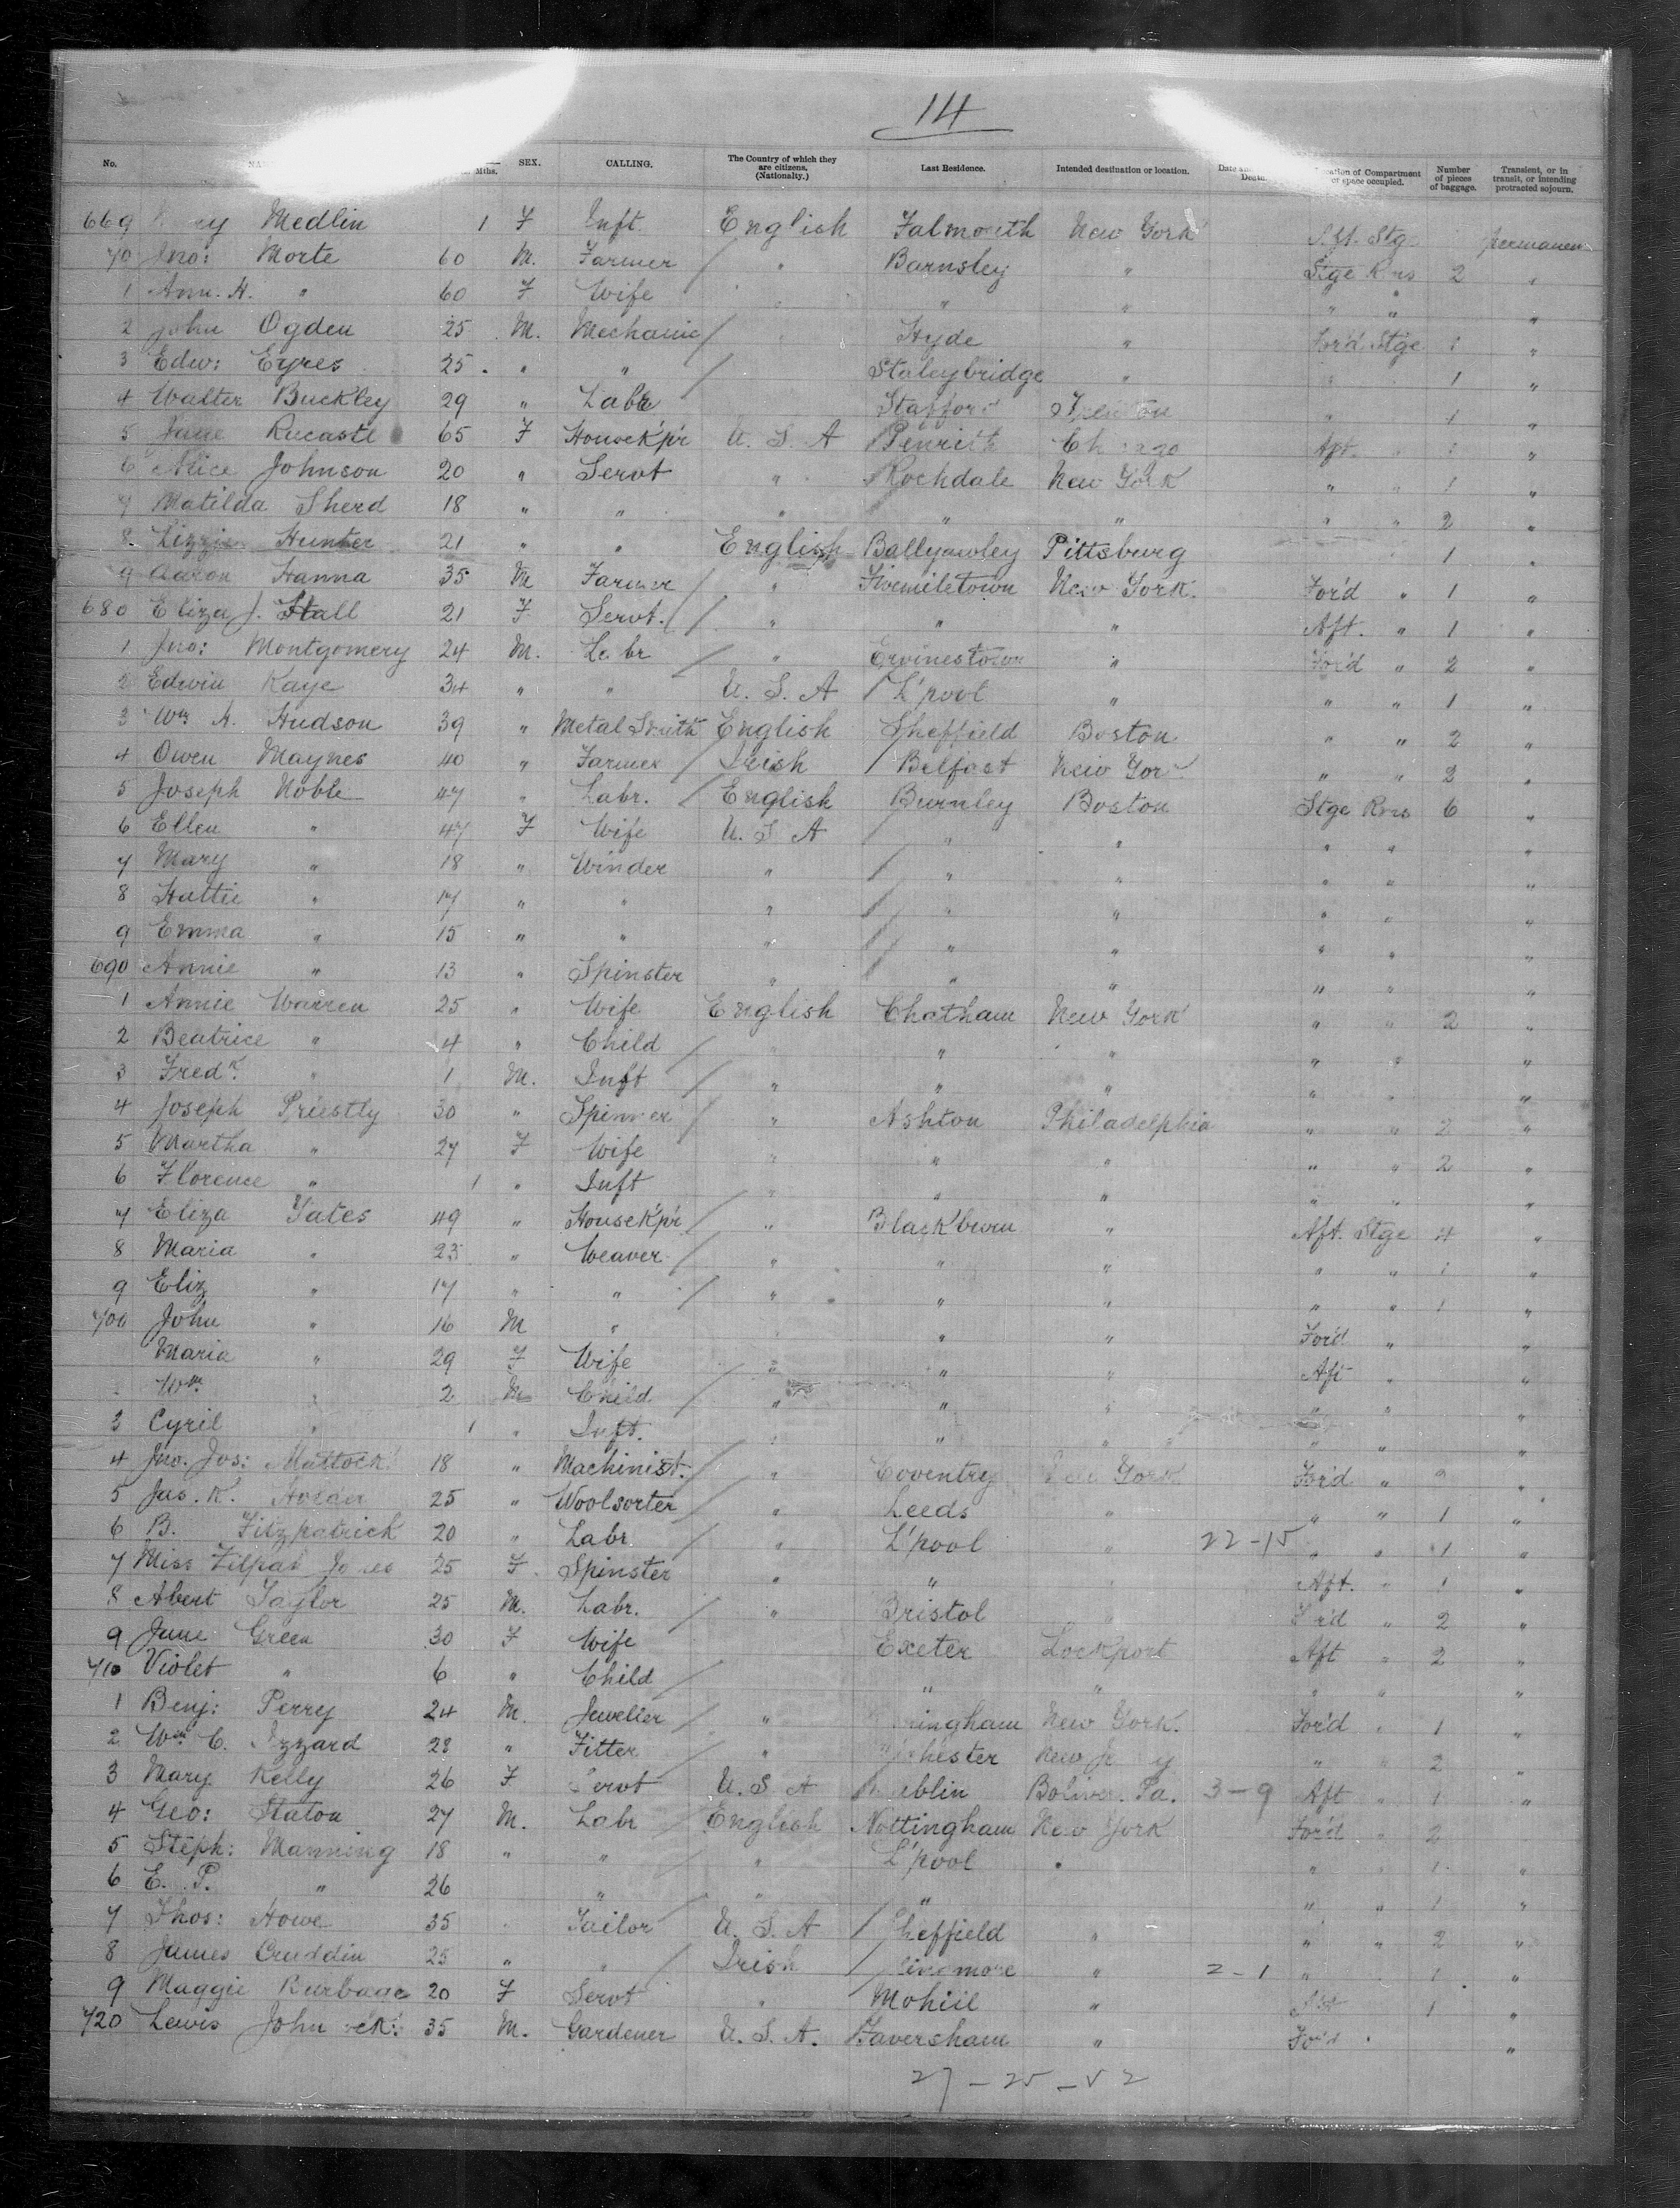 14
No. Mths. SEX. CALLING. The Country of which they are citizens. (Nationalty.) Last Residence. Intended destination or location. Date Death. Location of Compartment or space occupied. Number of pieces of baggage. Transient, or in transit, or intending protracted sojourn.
669 Medlin 1 F Inft. English Falmouth New York Aft. Stge permanent
70 Jno: Morte 60 M. Farmer / " Barnsley " Stge Rms 2 "
1 Ann. H. " 60 F Wife " " " " " "
2 John Ogden 25 M. Mechanic / " Hyde " For'd Stge 1 "
3 Edw: Eyres 25 " " / Staleybridge " 1 "
4 Walter Buckley 29 " Labr Stafford Trenton " 1 "
5 Jane Rucastle 65 F Housek'p'r U. S. A / Penrith Chicago Aft. 1 "
6 Alice Johnson 20 " Servt " / Rochdale New York " " 1 "
7 Matilda Sherd 18 " " " " " " " 2 "
8 Lizzie Hunter 21 " " English Ballygawley Pittsburg 1 "
9 Aaron Hanna 35 M Farmer / " Fivemiletown New York. For'd " 1 "
680 Eliza J. Stall 21 F Servt. / " " " Aft. " 1 "
1 Jno: Montgomery 24 M. Labr / " Ervinestown " For'd " 2 "
2 Edwin Kaye 34 " " U. S. A / L'pool " " " 1 "
3 Wm A. Hudson 39 " Metal Smith English Sheffield Boston. " " 2 "
4 Owen Maynes 40 " Farmer / Irish / Belfast New York " " 2 "
5 Joseph Noble 47 " Labr. / English Burnley Boston Stge Rms 6 "
6 Ellen " 47 F Wife U. S A / " " " " "
7 Mary " 18 " Winder " / " " " " "
8 Hattie " 17 " " " / " " " " "
9 Emma " 15 " " " / " " " " "
690 Annie " 13 " Spinster " / " " " " "
1 Annie Warren 25 " Wife English Chatham New York " " 2 "
2 Beatrice " 4 " Child / " " " " " "
3 Fredk. " 1 M. Inft / " " " " " "
4 Joseph Priestly 30 " Spinner / " Ashton Philadelphia " " 2 "
5 Martha " 27 F Wife " " " " " 2 "
6 Florence " 1 " Inft " " " " " "
7 Eliza Yates 49 " Housek'p'r / " Blackburn " Aft. Stge 4 "
8 Maria " 23 " Weaver / " " " " " 1 "
9 Eliz " 17 " " / " " " " " 1 "
700 John " 16 M " " " " For'd " "
Maria " 29 F Wife " " " Aft " "
Wm " 2 M Child / " " " " " "
3 Cyril " 1 " Inft. " " " " " "
4 Jno. Jos: Mattock 18 " Machinist. / " Coventry New York For'd " 2 "
5 Jas. K. Holder 25 " Woolsorter / " Leeds " " " 1 "
6 B. Fitzpatrick 20 " Labr / " L'pool " 22-15 " " 1 "
7 Miss Zilpah Jones 25 F Spinster " " " Aft. " 1 "
8 Abert Taylor 25 M. Labr. / " Bristol " For'd " 2 "
9 Jane Green 30 F Wife Exeter Lockport Aft " 2 "
710 Violet " 6 " Child / " " " " "
1 Benj: Perry 24 M. Jeweller / " New York. For'd " 1 "
2 Wm C. Izzard 28 " Fitter / " New Jersey " " 2 "
3 Mary Kelly 26 F Servt U. S A Dublin Boliver. Pa. 3-9 Aft " 1 "
4 Geo: Staton 27 M. Labr English Nottingham New York For'd " 2 "
5 Steph: Manning 18 " " / " L'pool " " " 1 "
6 E. P. " 26 " / " " " " 1 "
7 Thos: Howe 35 " Tailor U. S. A / Sheffield " " " 2 "
8 James Cruddin 25 " " / Irish / " 2-1 " 1 "
9 Maggie Burbage 20 F Servt " Mohill " Aft 1 "
720 Lewis 35 M. Gardener U. S. A. Faversham " For'd "
27-25-52